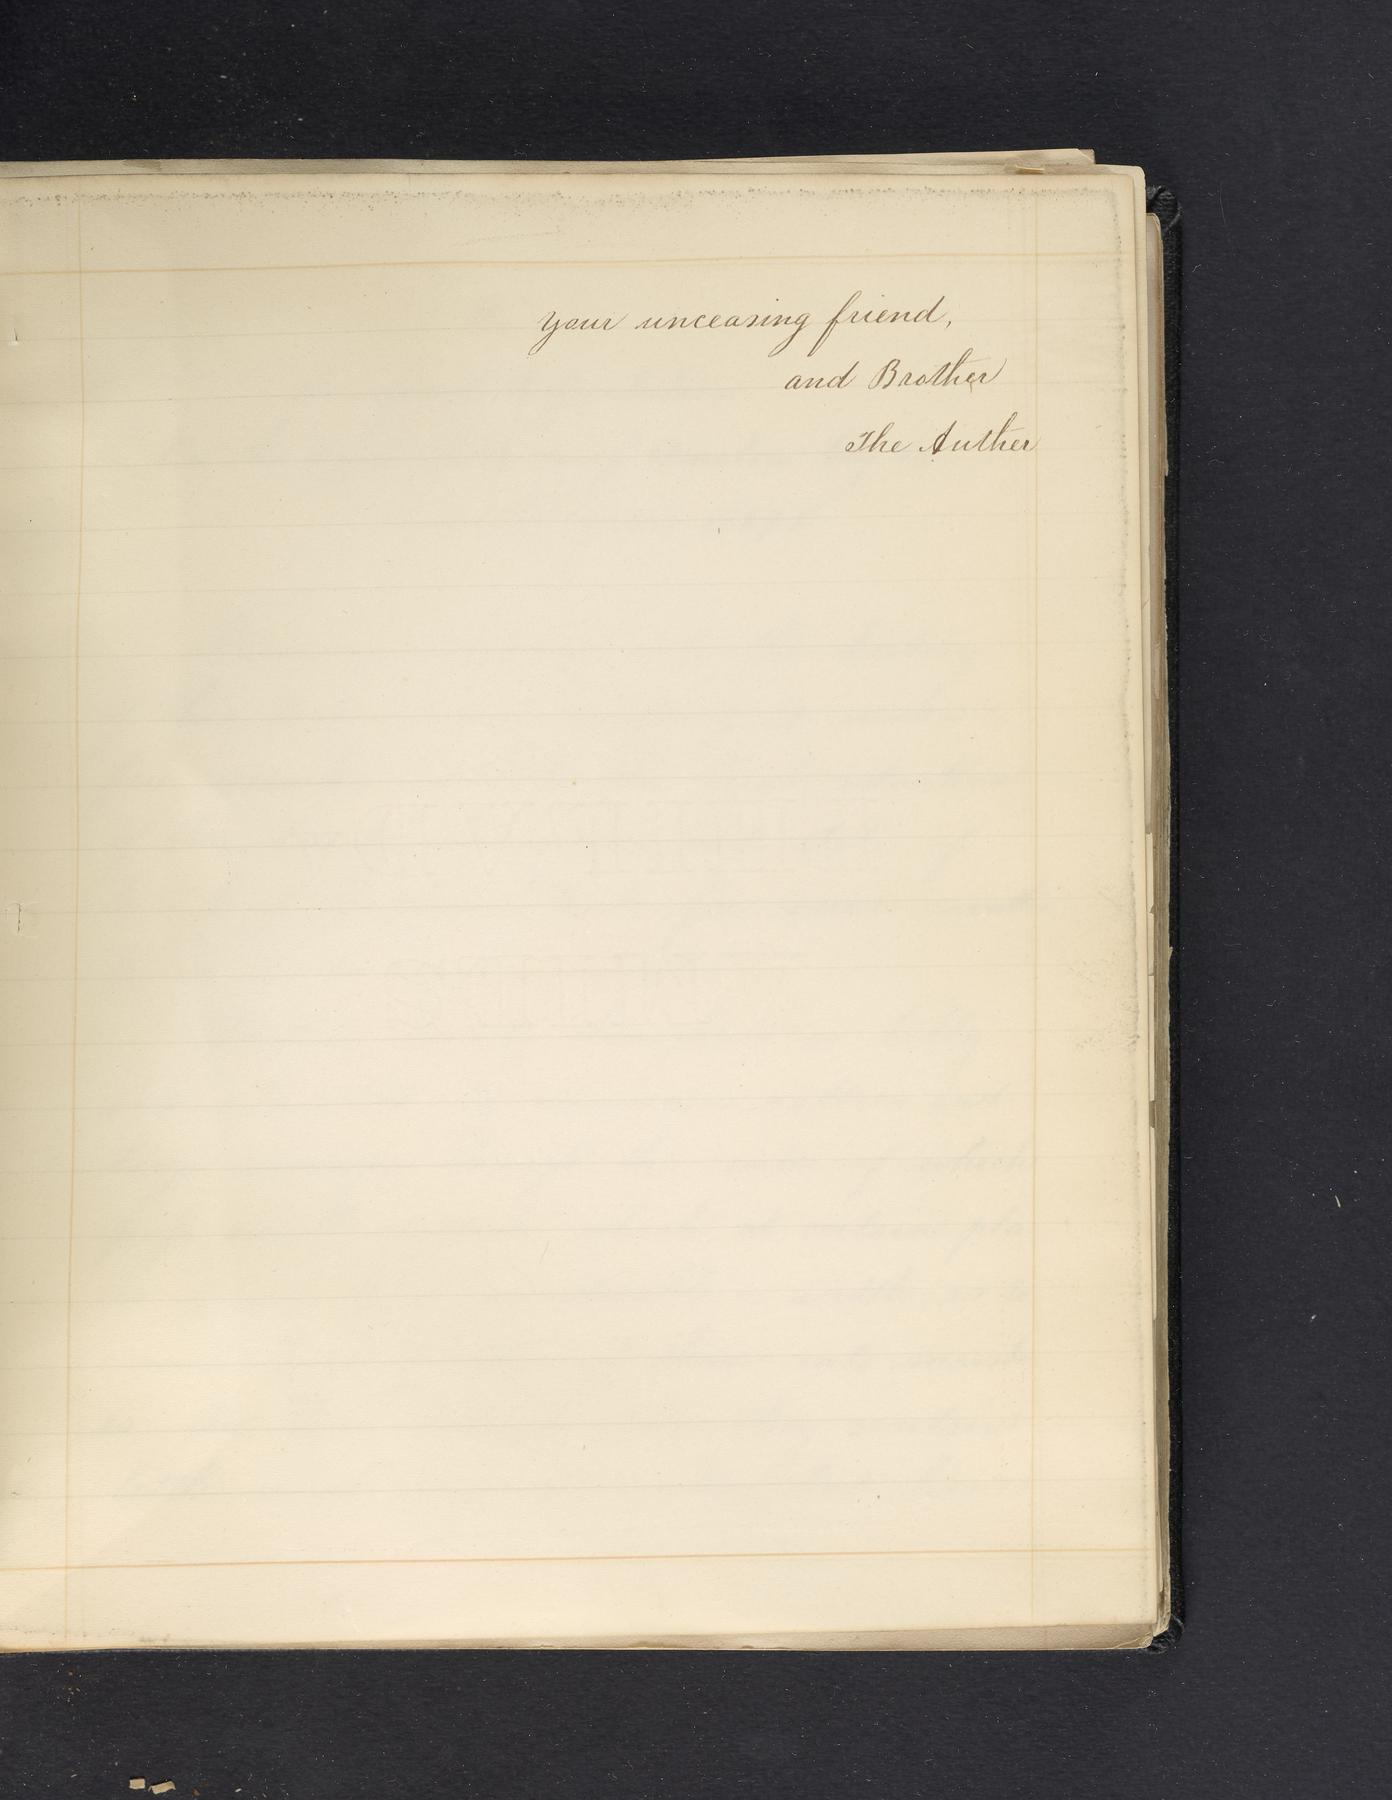 your unceasing friend,
and Brother
The Auther